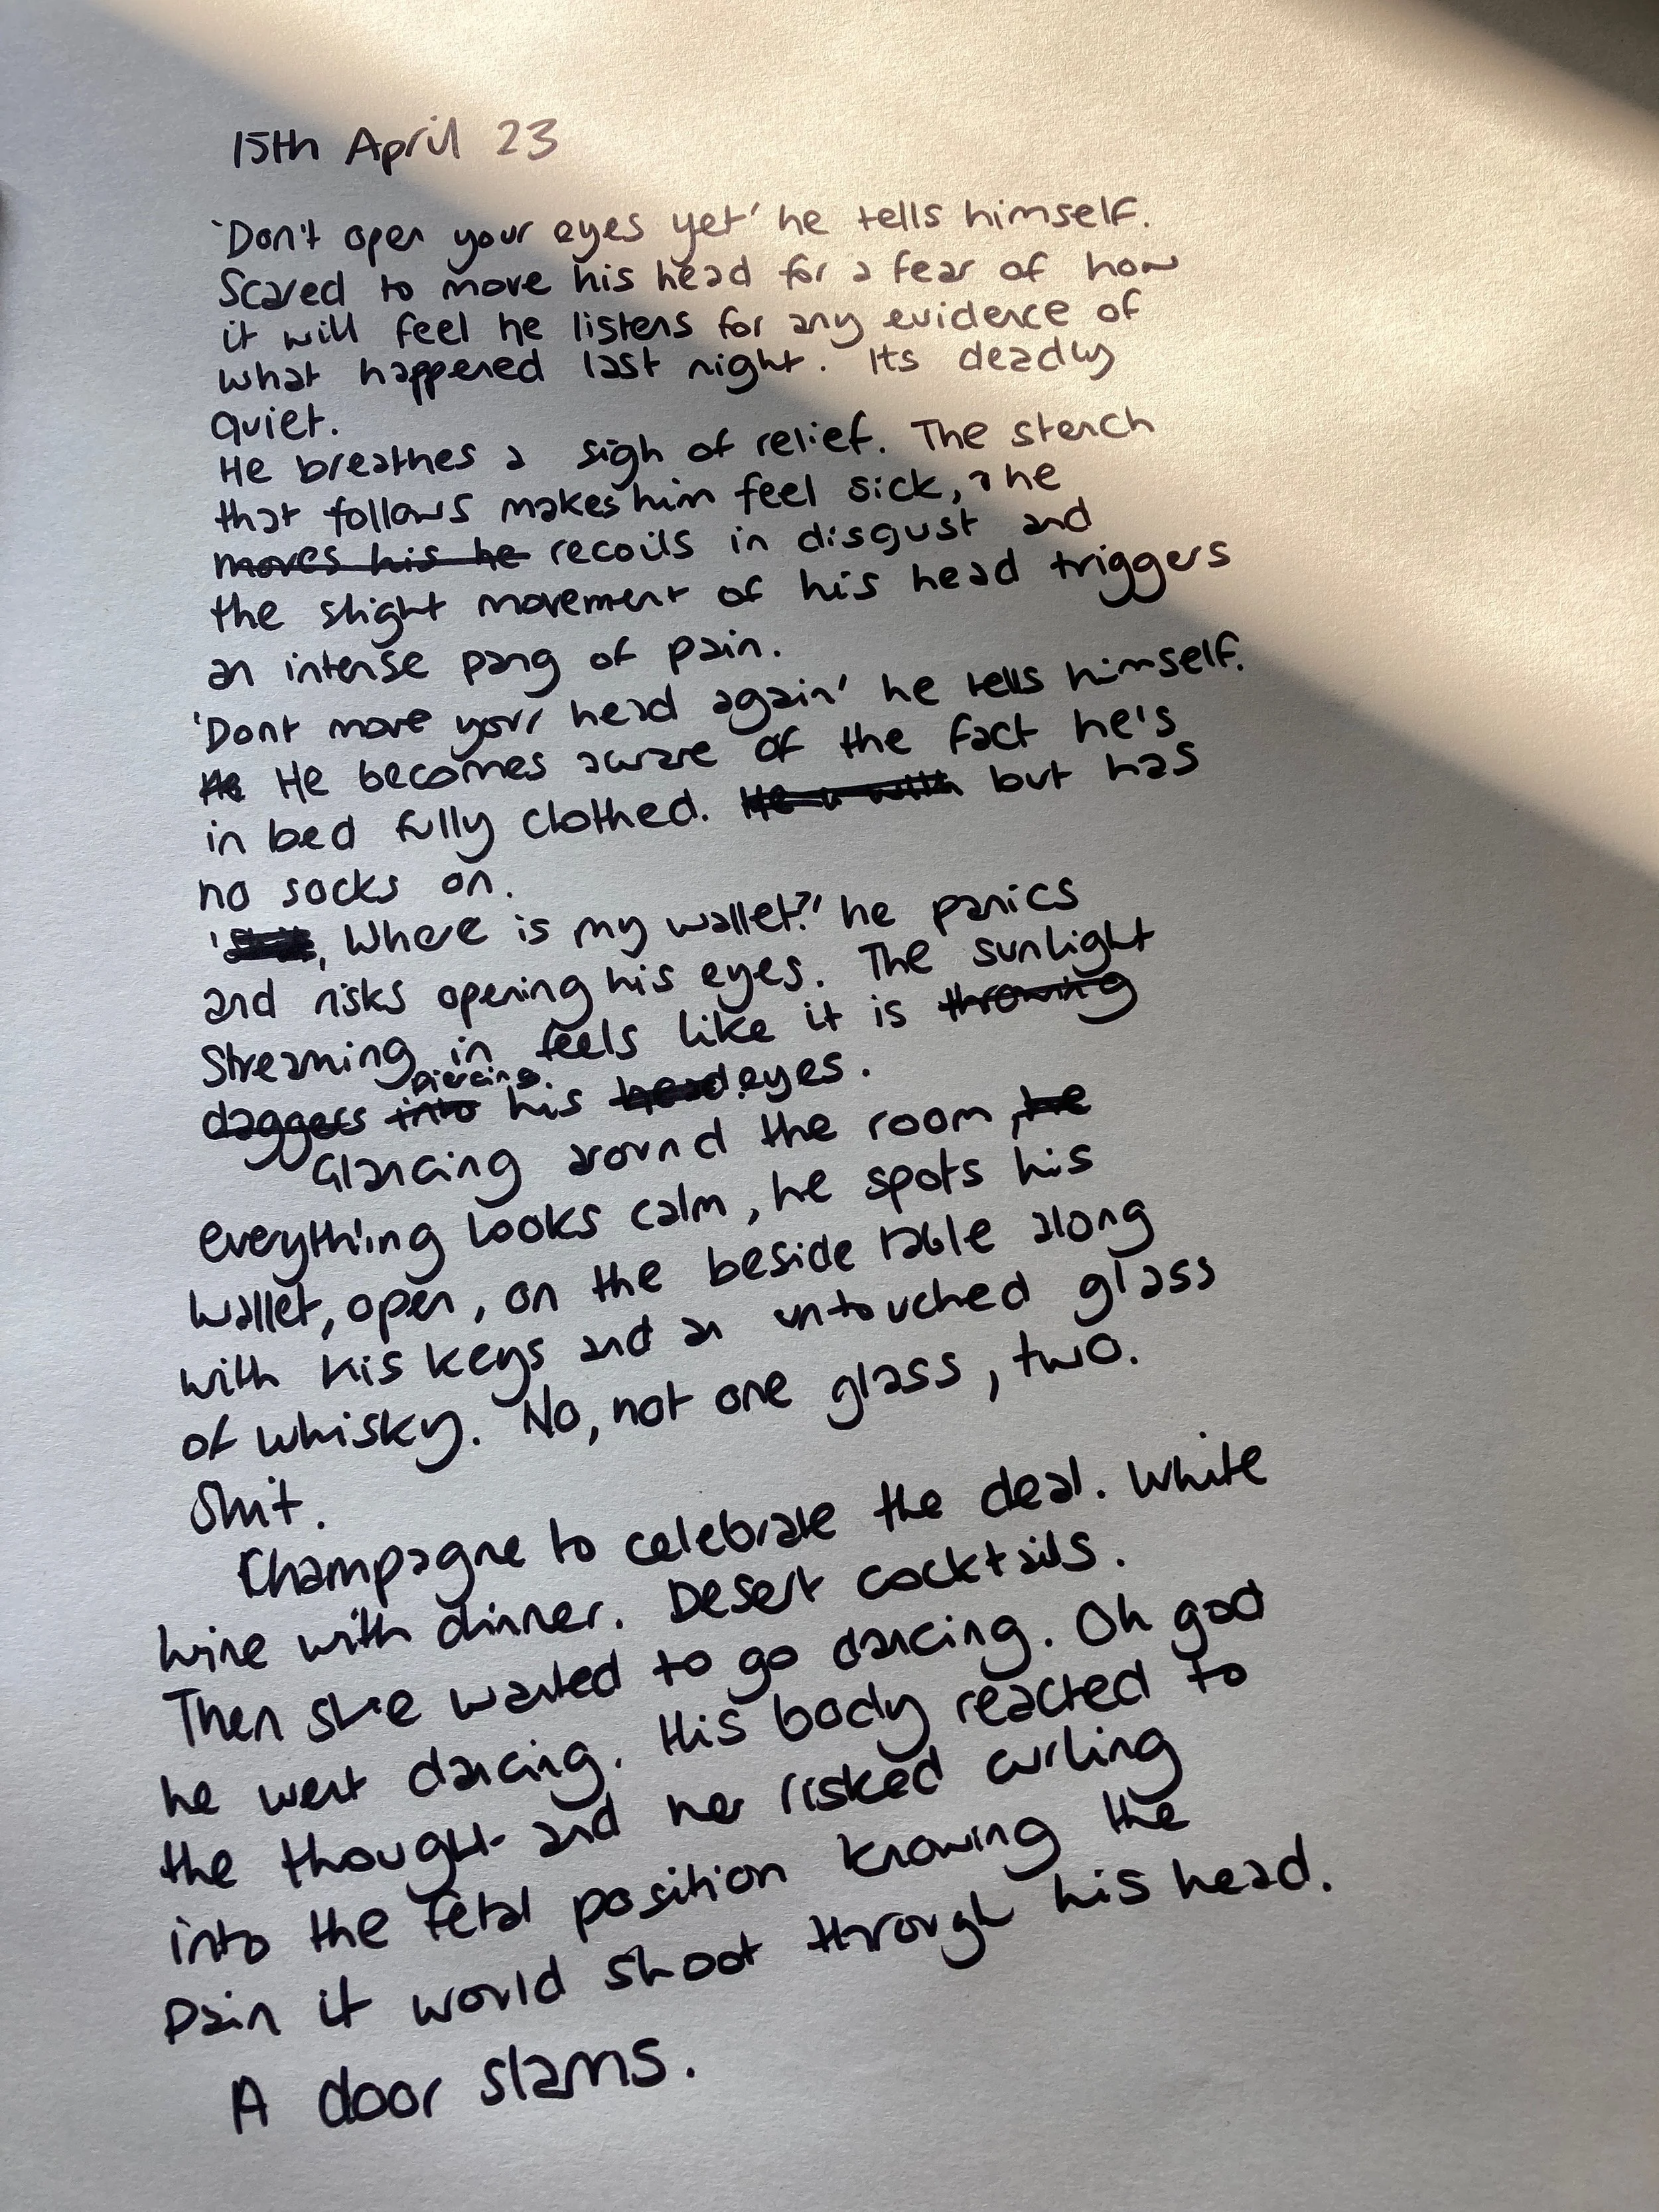 15th April 23
'Don't open your eyes yet' he tells himself.
Scared to move his head for a fear of how
it will feel he listens for any evidence of
what happened last night. Its deadly
quiet.
He breathes a sigh of relief. The stench
that follows makes him feel sick, he
moves his he recoils in disgust and
the slight movement of his head triggers
an intense pang of pain.
'Dont move your head again' he tells himself.
He He becomes aware of the fact he's
in bed fully clothed. but has
no socks on.
' , Where is my wallet?' he panics
and risks opening his eyes. The sunlight
streaming in feels like it is throwing
piercing
daggers into his head eyes.
Glancing around the room, he
everything looks calm, he spots his
wallet, open, on the beside table along
with his keys and an untouched glass
of whisky. No, not one glass, two.
Shit.
Champagne to celebrate the deal. White
wine with dinner. Desert cocktails.
Then she wanted to go dancing. Oh god
he went dancing. His body reacted to
the thought and he risked curling
into the fetal position knowing the
pain it would shoot through his head.
A door slams.